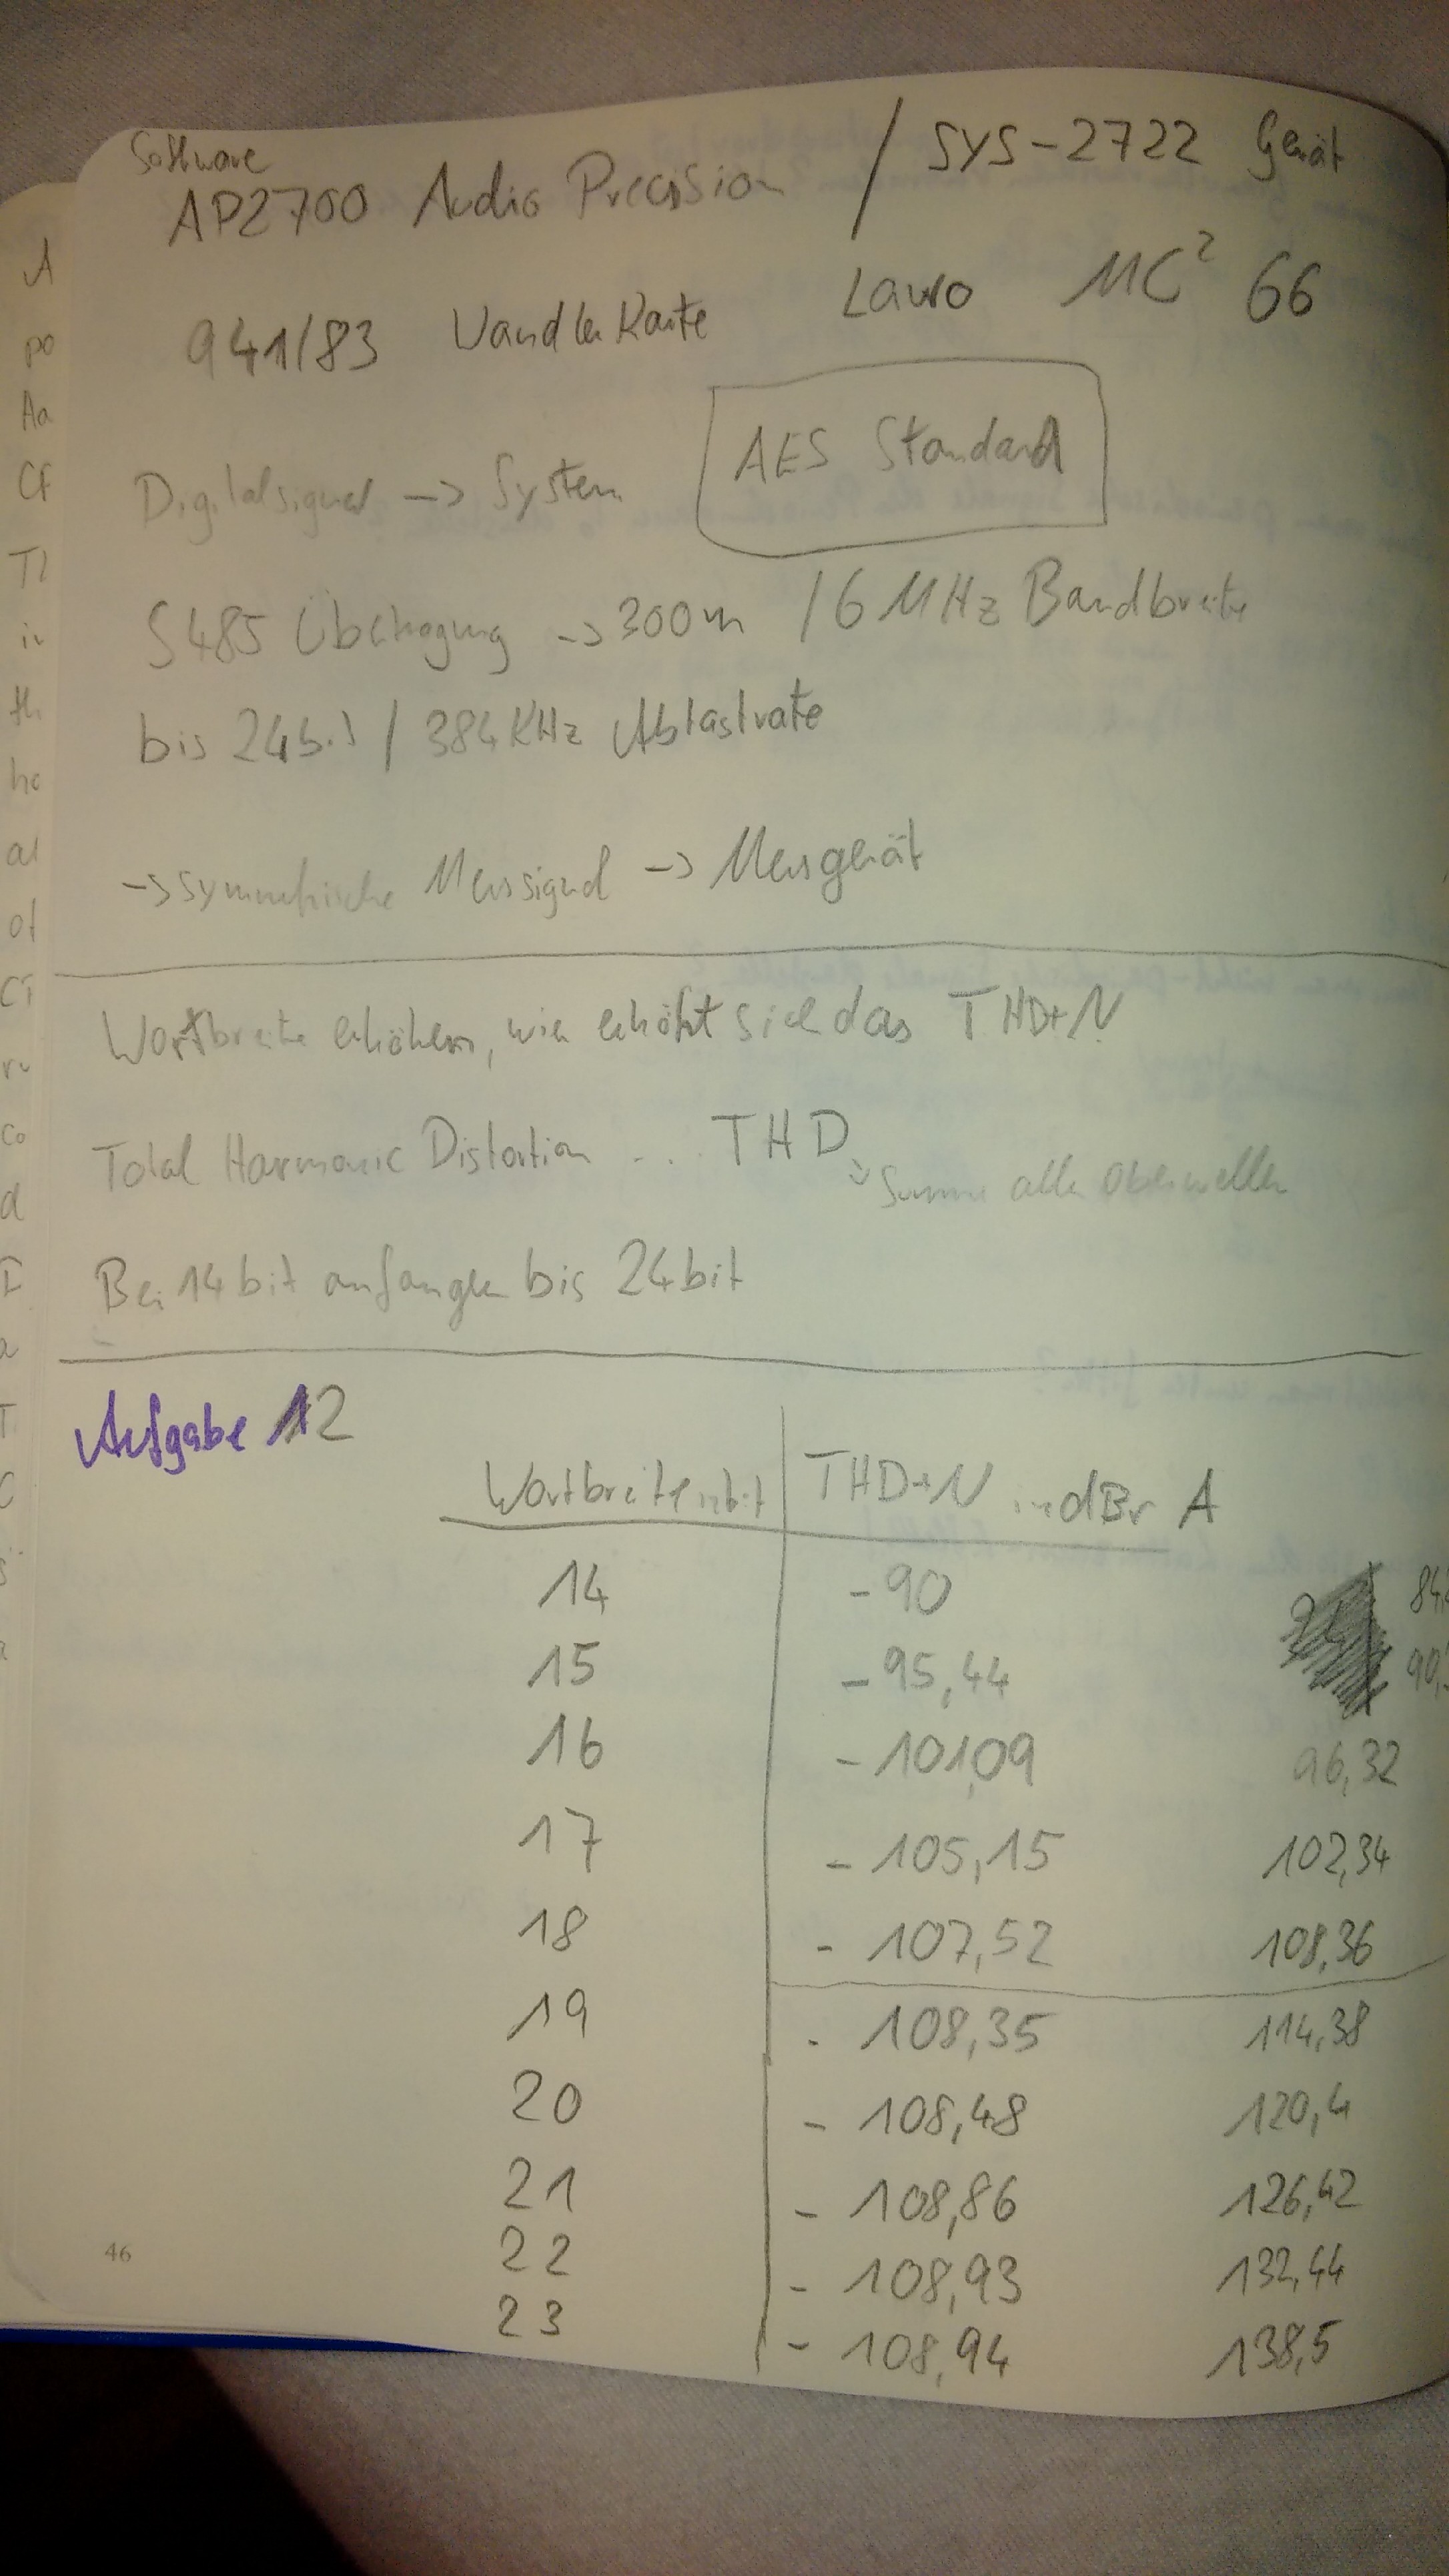 Software
AP2700 Audio Precision / SYS-2722 Gerät
941/83 Wandler Karte Lawo MC² 66
Digitalsignal -> System AES Standard
S485 Übertragung -> 300m / 6 MHz Bandbreite
bis 24bit / 384KHz Abtastrate
-> symmetrische Messsignal -> Messgerät
Wortbreite erhöhen, wie erhöht sich das THD+N
Total Harmonic Distortion ... THD -> Summe aller Oberwellen
Bei 14bit anfangen bis 24bit
Aufgabe 12
Wortbreite in bit THD+N in dBr A
14 -90 84,
15 -95,44 90,
16 -101,09 96,32
17 -105,15 102,34
18 -107,52 108,36
19 -108,35 114,38
20 -108,48 120,4
21 -108,86 126,42
22 -108,93 132,44
23 -108,94 138,5
46